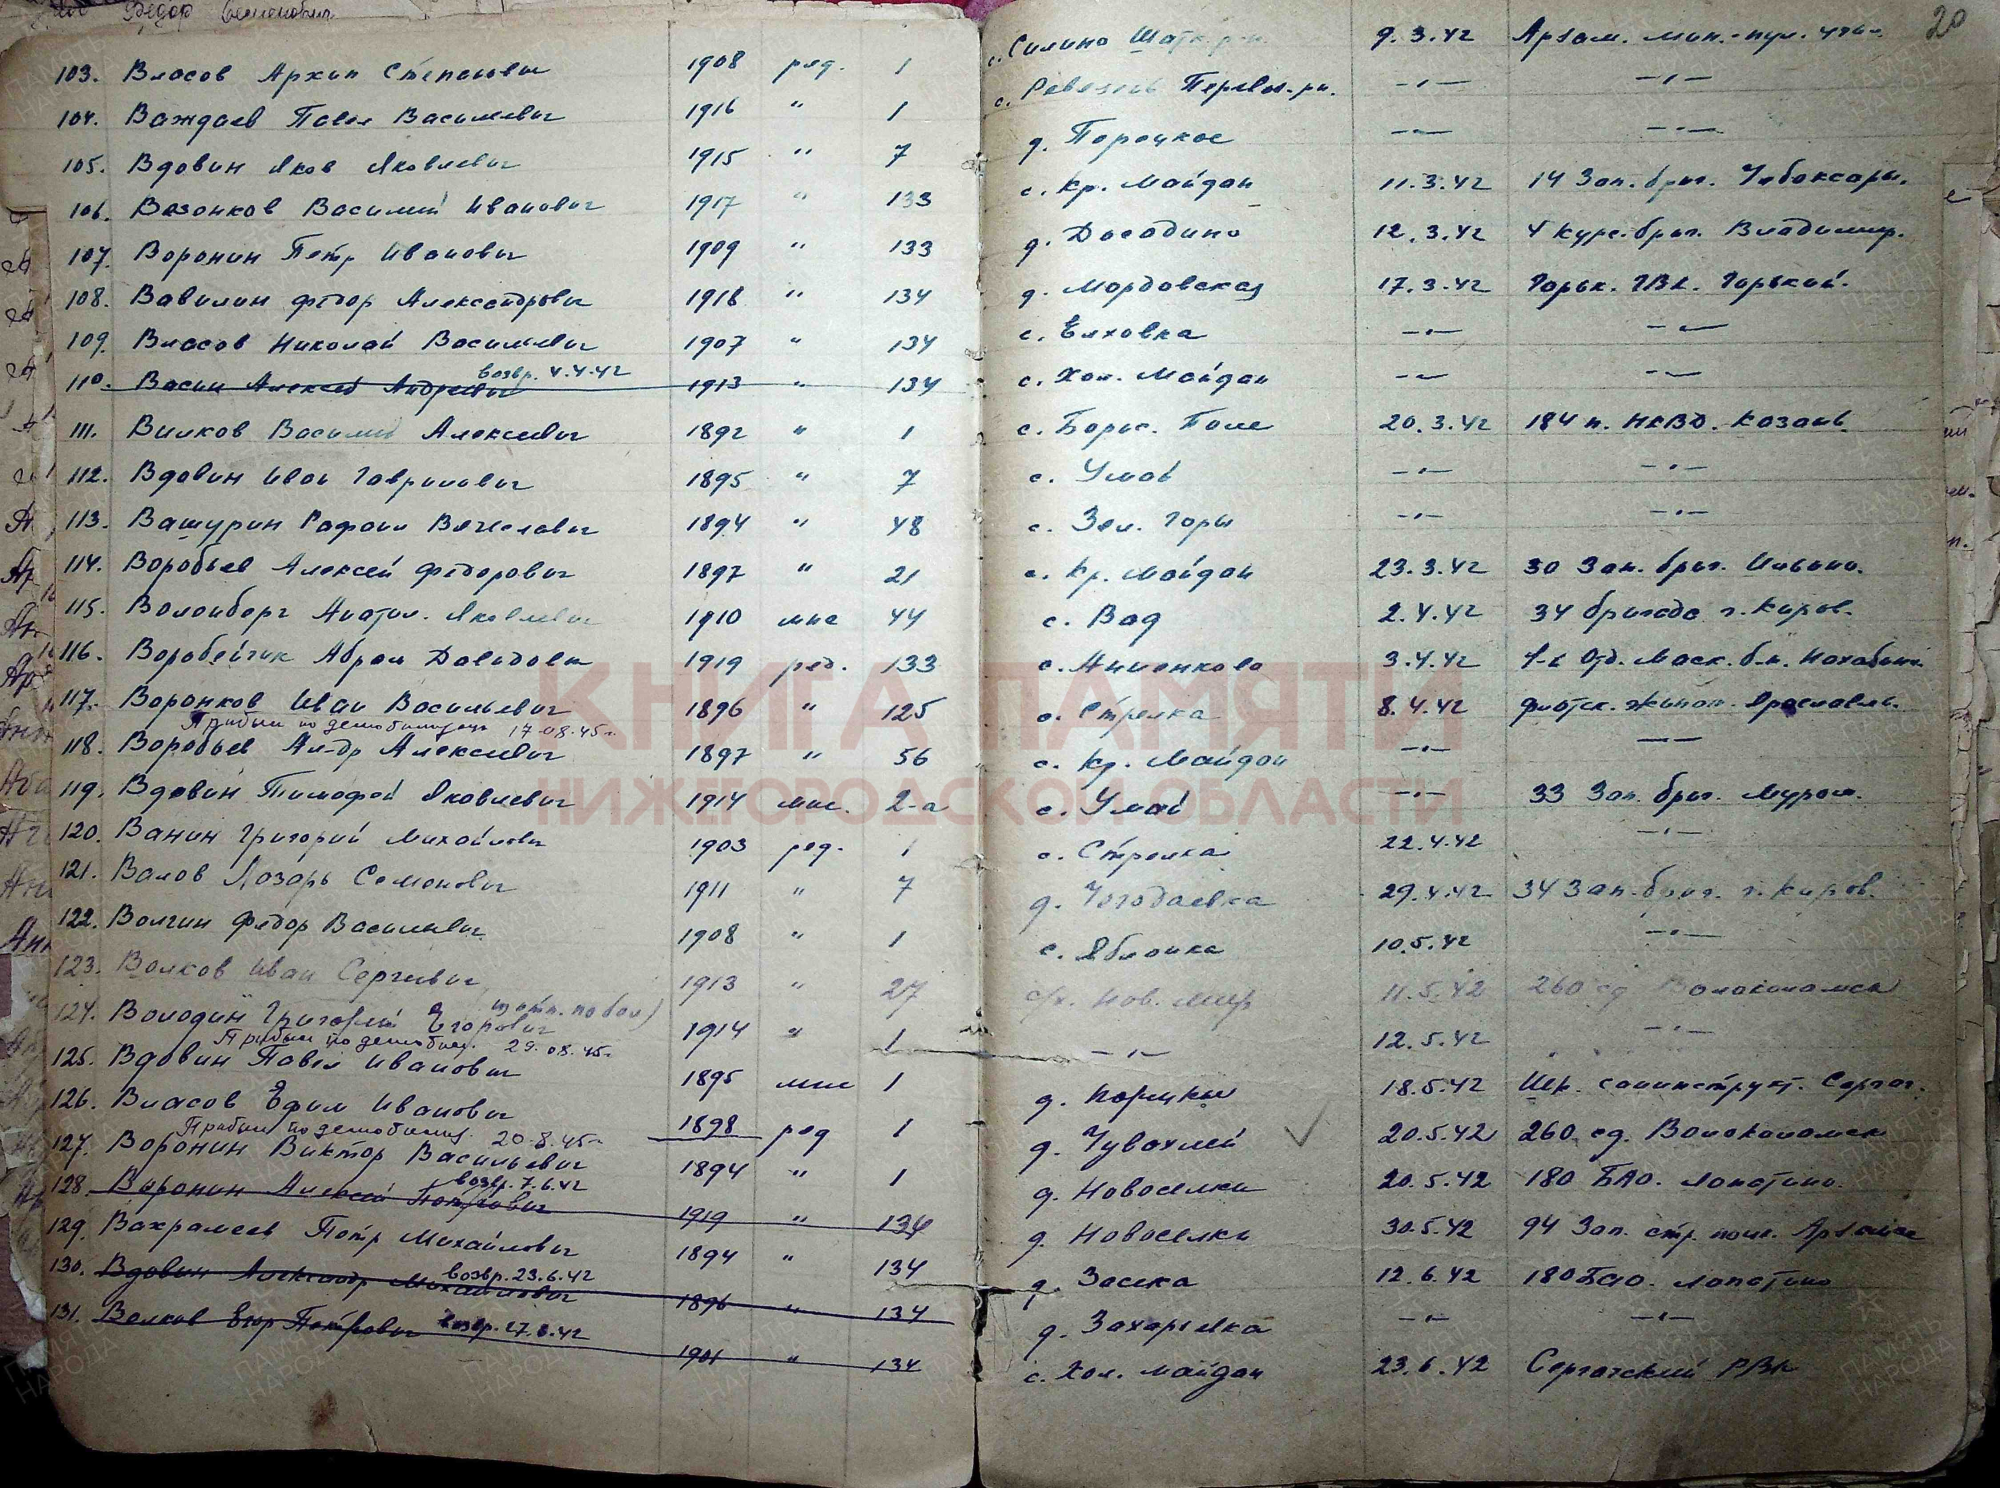 Федор Семенович
20
103. Власов Архип Степанович 1908 ряд. 1 с. Силино Шатк. р-н. 9.3.42 Арзам. мин.-пул.
104. Важдаев Павел Васильевич 1916 " 1 с. Перевоз. рн. —"— —"—
105. Вдовин Яков Яковлевич 1915 " 7 д. Порецкое —"— —"—
106. Вазонков Василий Иванович 1917 " 133 с. Кр. Майдан 11.3.42 14 Зап. бриг. Чебоксары.
107. Воронин Петр Иванович 1909 " 133 д. Досадино 12.3.42 4 курс. бриг. Владимир.
108. Вавилин Федор Александрович 1918 " 134 д. Мордовская 17.3.42 Горьк. ГВК. Горький.
109. Власов Николай Васильевич 1907 " 134 с. Елховка —"— —"—
возвр. 4.4.42
110. Васин Алексей Андреевич 1913 " 134 с. Хол. Майдан —"— —"—
111. Вилков Василий Алексеевич 1892 " 1 с. Борис. Поле 20.3.42 184 п. НКВД. Казань
112. Вдовин Иван Гаврилович 1895 " 7 с. Умай —"— —"—
113. Вашурин Рафаил Вячеслович 1894 " 48 с. Зел. Горы —"— —"—
114. Воробьев Алексей Федорович 1897 " 21 с. Кр. Майдан 23.3.42 30 Зап. бриг. Ильино.
115. Воленберг Анатол. Яковлевич 1910 мнс 44 с. Вад 2.4.42 34 бригада г. Киров.
116. Воробейчик Абрам Давидович 1919 ряд. 133 с. Анненково 3.4.42 Отд. Моск. б-н. Нахабино
117. Воронков Иван Васильевич 1896 " 125 с. Стрелка 8.4.42 флотск. экипаж. Ярославль.
Прибыл по демобилизации 17.08.45 г.
118. Воробьев Ал-др Алексеевич 1897 " 56 с. Кр. Майдан —"— —"—
119. Вдовин Тимофей Яковлевич 1914 мнс. 2-а с. Умай —"— 33 Зап. бриг. Муром.
120. Ванин Григорий Михайлович 1903 ряд. 1 с. Стрелка 22.4.42 —"—
121. Валов Лазарь Семенович 1911 " 7 д. Чогодаевка 29.4.42 34 Зап. бриг. г. Киров.
122. Волгин Федор Васильевич 1908 " 1 с. Яблонка 10.5.42 —"—
123. Волков Иван Сергеевич 1913 " 27 с/х. Нов. Мир 11.5.42 260 сд Волоколамск
124. Володин Григорий Егорович 1914 " 1 —"— 12.5.42 —"—
Прибыл по демобил. 29.08.45 г.
125. Вдовин Павел Иванович 1895 мнс 1 д. Корицы 18.5.42 Шк. санинструкт. Сергач.
126. Власов Ефим Иванович 1898 ряд 1 д. Чувахлей 20.5.42 260 сд. Волоколамск
Прибыл по демобилиз. 20.8.45 г.
127. Воронин Виктор Васильевич 1894 " 1 д. Новоселки 20.5.42 180 БАО. Лопатино.
возвр. 7.6.42
128. Воронин Алексей Петрович 1919 " 134 д. Новоселки 30.5.42 94 Зап. стр. полк. Арзамас
129. Вахрамеев Петр Михайлович 1894 " 134 д. Засека 12.6.42 180 БАО. Лопатино
возвр. 23.6.42
130. Вдовин Александр Михайлович 1896 " 134 д. Захарьевка —"— —"—
131. Волков Егор Петрович возвр. 27.6.42 1901 " 134 с. Хол. Майдан 23.6.42 Сергачский РВК
КНИГА ПАМЯТИ
НИЖЕГОРОДСКОЙ ОБЛАСТИ